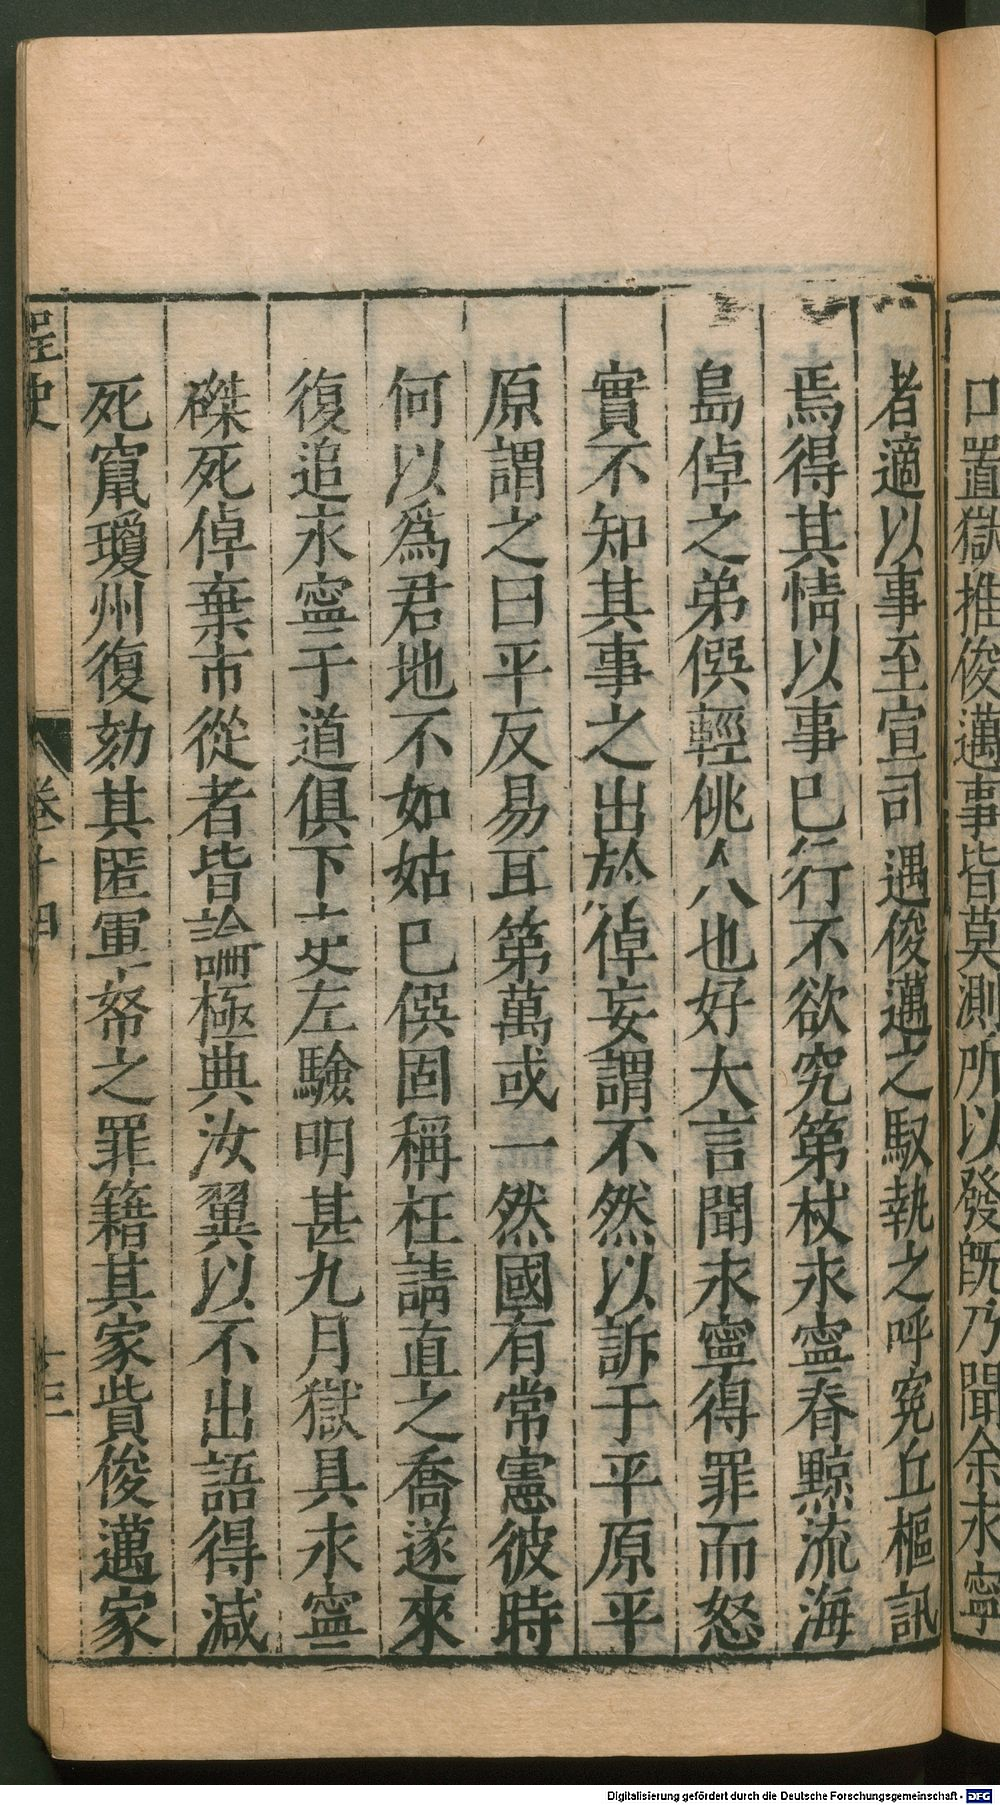 口置獄推俊邁事皆莫測所以發旣乃聞余永寧
者適以事至宣司遇俊邁之馭執之呼寃丘樞訊
焉得其情以事已行不欲究第杖永寧脊黥流海
島倬之弟僎輕佻人也好大言聞永寧得罪而怒
實不知其事之出於倬妄謂不然以訴于平原平
原謂之曰平反易耳第萬或一然國有常憲彼時
何以爲君地不如姑已僎固稱枉請直之喬遂來
復追永寧于道俱下吏左驗明甚九月獄具永寧
磔死倬棄市從者皆論極典汝翼以不出語得減
死竄瓊州復劾其匿軍帑之罪籍其家貲俊邁家
桯史
卷十四
十三
Digitalisierung gefördert durch die Deutsche Forschungsgemeinschaft - DFG